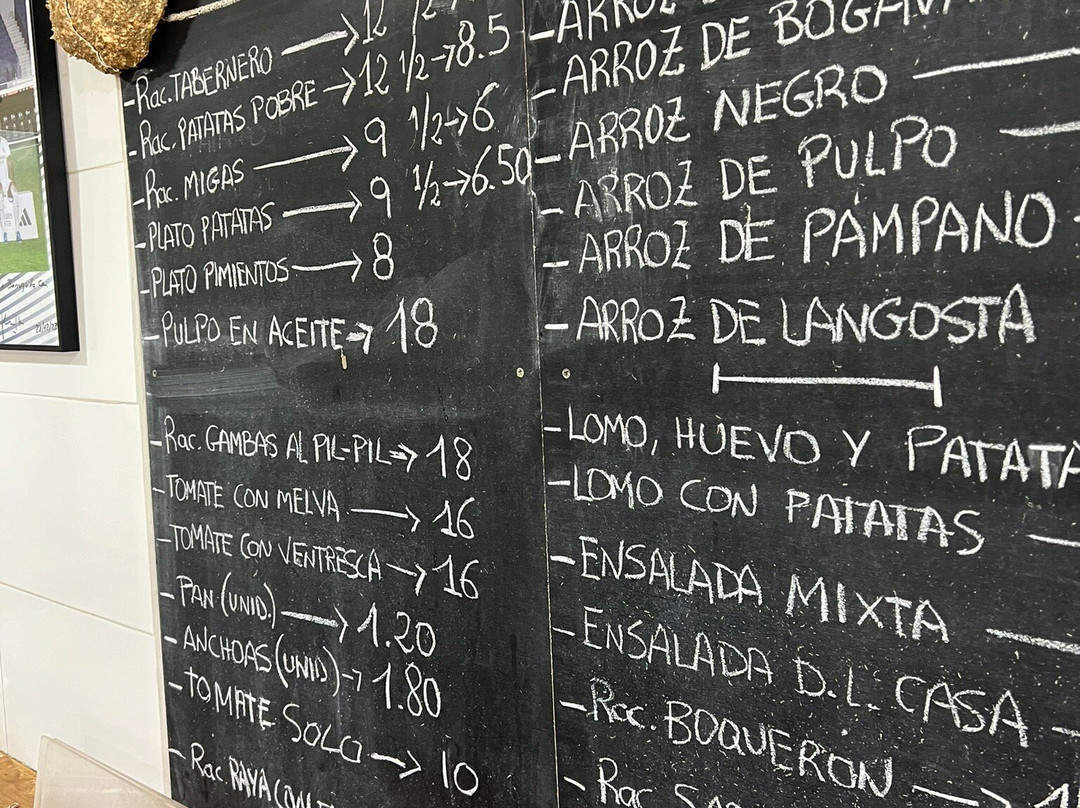 12 1/2→
-Rac. TABERNERO → 12 1/2→8.5
-Rac. PATATAS POBRE → 9 1/2→6
-Rac. MIGAS → 9 1/2→6.50
-PLATO PATATAS → 8
-PLATO PIMIENTOS →
-PULPO EN ACEITE → 18
-Rac. GAMBAS AL PIL-PIL → 18
-TOMATE CON MELVA → 16
-TOMATE CON VENTRESCA → 16
-PAN (UNID.) → 1.20
-ANCHOAS (UNID) → 1.80
-TOMATE SOLO → 10
-Rac RAYA CON
-ARROZ
-ARROZ DE BOGAVA
-ARROZ NEGRO
-ARROZ DE PULPO
-ARROZ DE PÁMPANO -
-ARROZ DE LANGOSTA
-LOMO, HUEVO Y PATATA
-LOMO CON PATATAS
-ENSALADA MIXTA
-ENSALADA D.L. CASA
-Rac. BOQUERON →
-Rac